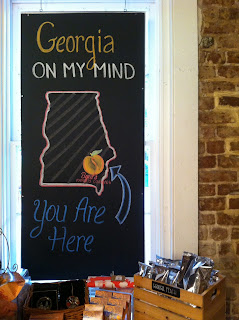 Georgia
ON MY MIND
You Are
Here